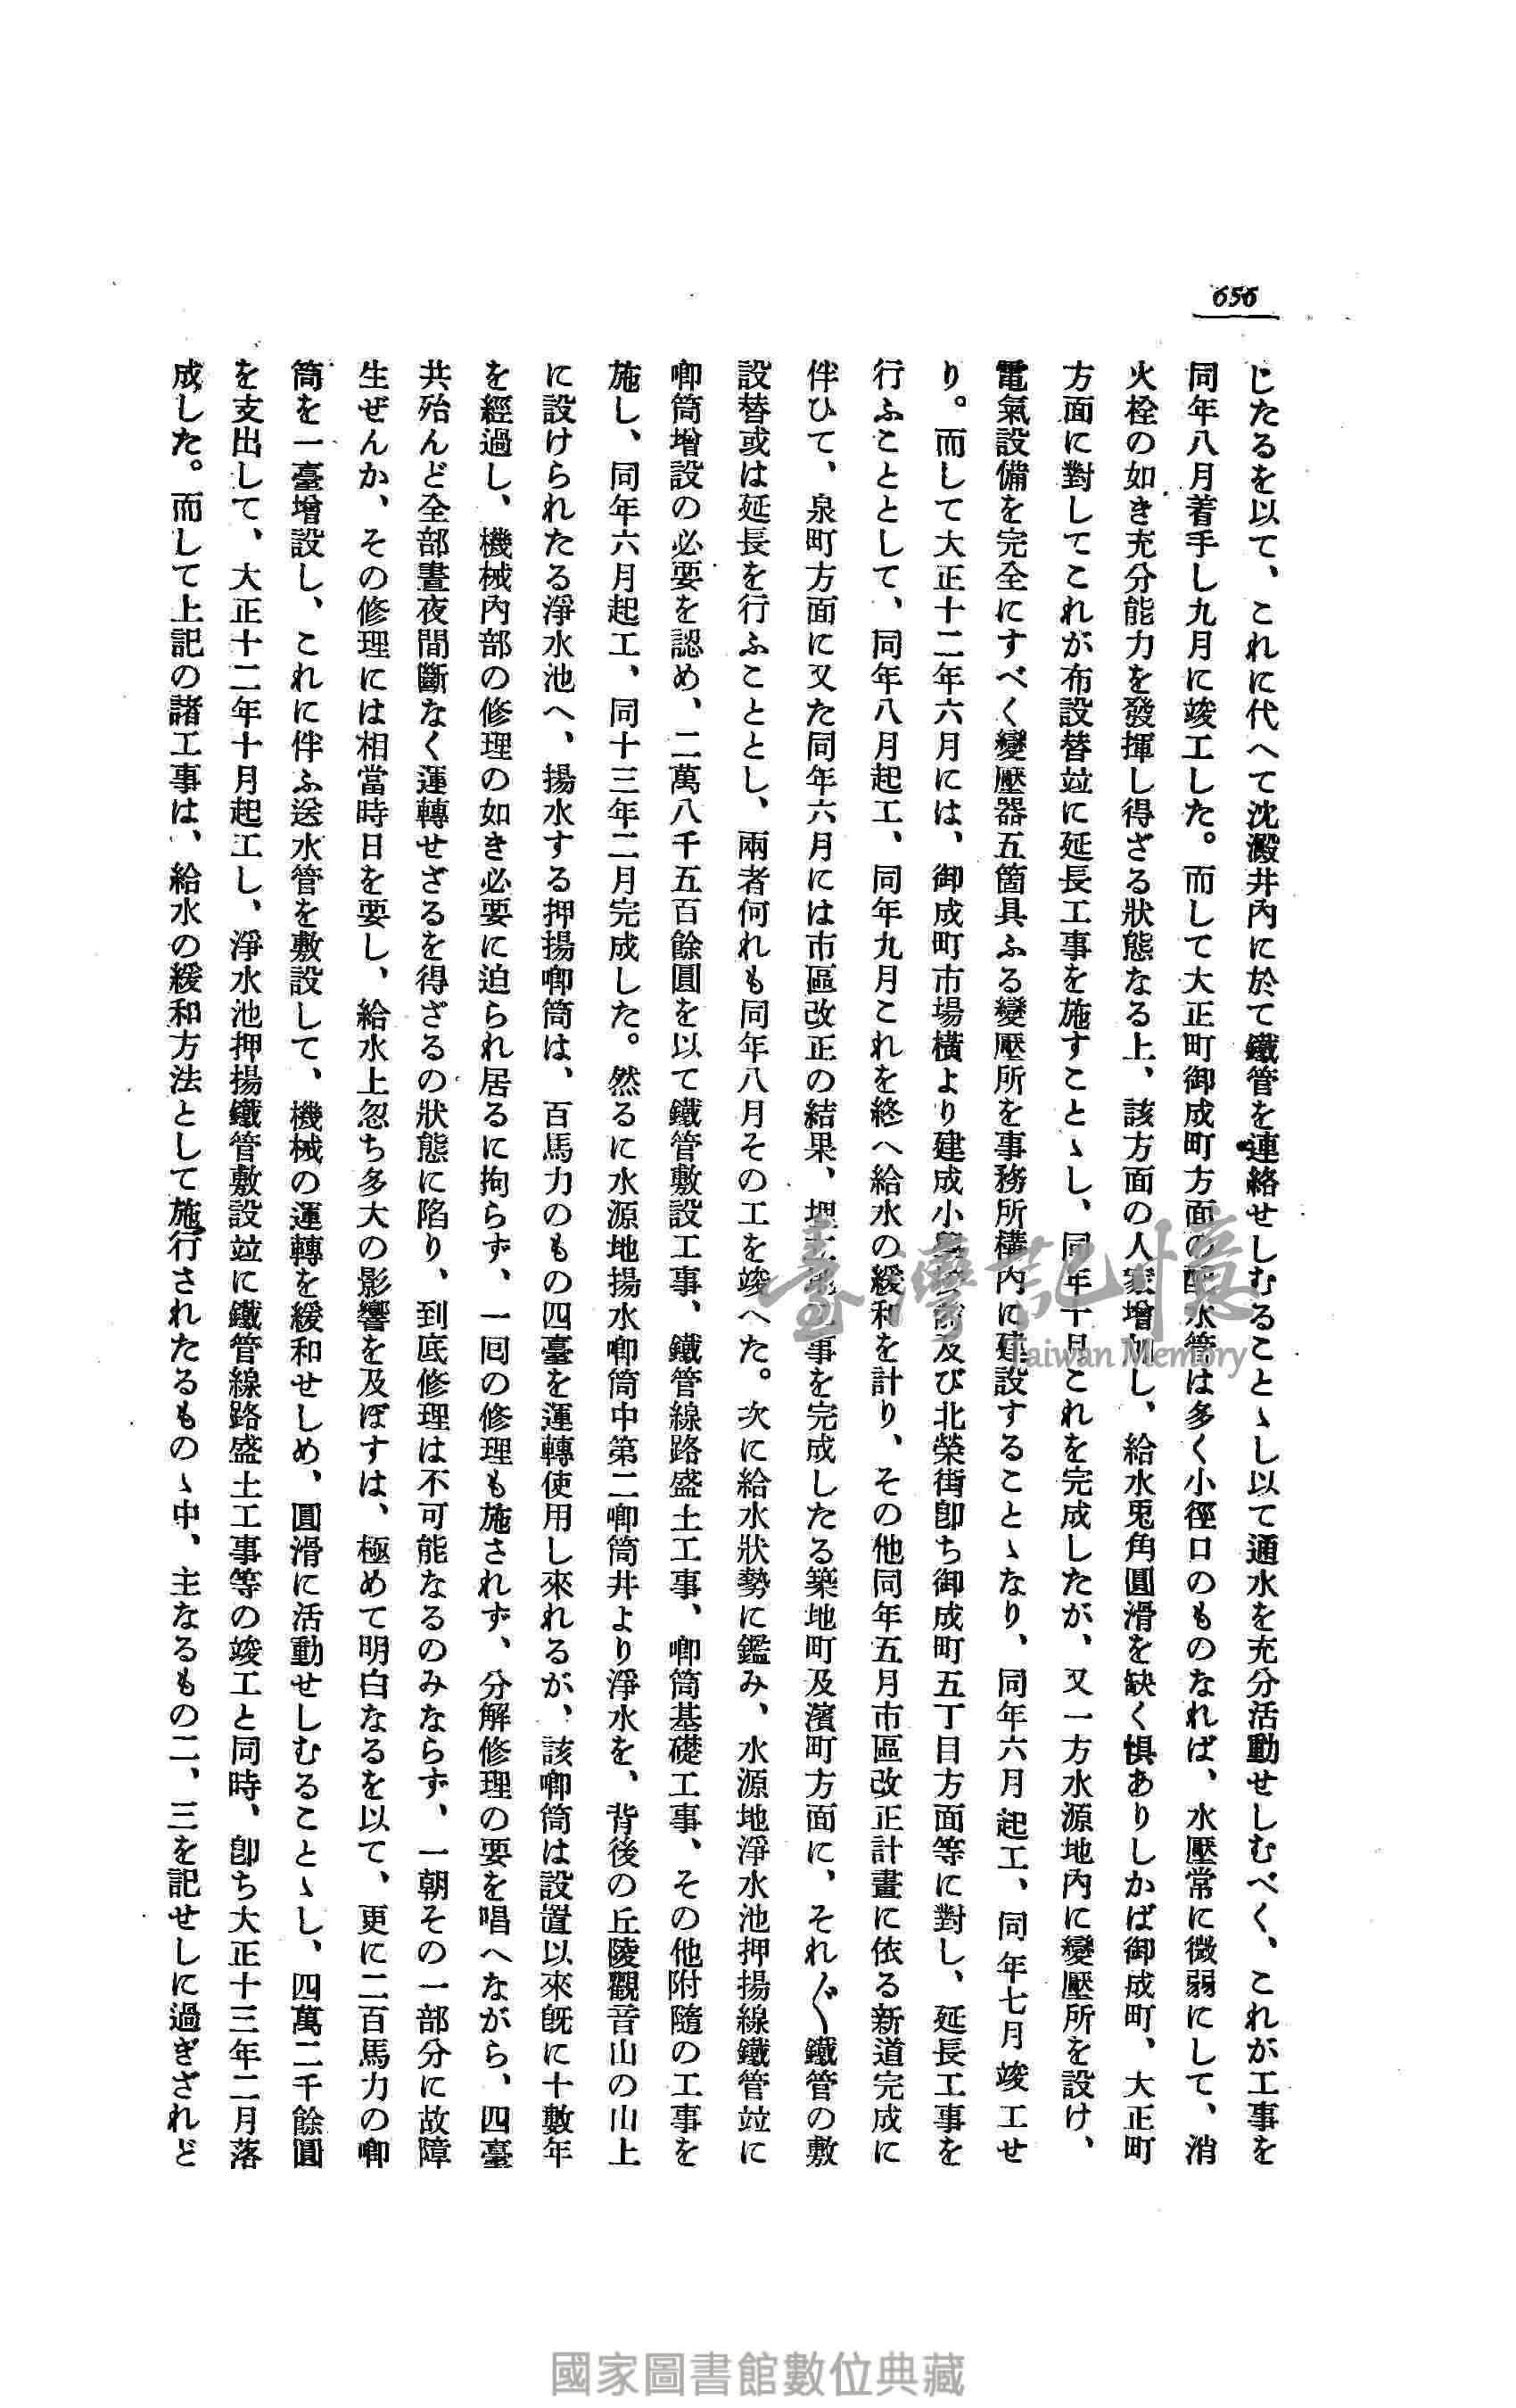 656
じたるを以て、これに代へて沈澱井內に於て鐵管を連絡せしむることゝし以て通水を充分活動せしむべく、これが工事を
同年八月着手し九月に竣工した。而して大正町御成町方面の配水管は多く小徑口のものなれば、水壓常に微弱にして、消
火栓の如き充分能力を發揮し得ざる狀態なる上、該方面の人家增加し、給水兎角圓滑を缺く惧ありしかば御成町、大正町
方面に對してこれが布設替竝に延長工事を施すことゝし、同年十月これを完成したが、又一方水源地內に變壓所を設け、
電氣設備を完全にすべく變壓器五箇具ふる變壓所を事務所構內に建設することゝなり、同年六月起工、同年七月竣工せ
り。而して大正十二年六月には、御成町市場橫より建成小學校前及び北榮街卽ち御成町五丁目方面等に對し、延長工事を
行ふこととして、同年八月起工、同年九月これを終へ給水の緩和を計り、その他同年五月市區改正計畫に依る新道完成に
伴ひて、泉町方面に又た同年六月には市區改正の結果、埋立地工事を完成したる築地町及濱町方面に、それ〲鐵管の敷
設替或は延長を行ふこととし、兩者何れも同年八月その工を竣へた。次に給水狀勢に鑑み、水源地淨水池押揚線鐵管竝に
喞筒增設の必要を認め、二萬八千五百餘圓を以て鐵管敷設工事、鐵管線路盛土工事、喞筒基礎工事、その他附隨の工事を
施し、同年六月起工、同十三年二月完成した。然るに水源地揚水喞筒中第二喞筒井より淨水を、背後の丘陵觀音山の山上
に設けられたる淨水池へ、揚水する押揚喞筒は、百馬力のもの四臺を運轉使用し來れるが、該喞筒は設置以來旣に十數年
を經過し、機械內部の修理の如き必要に迫られ居るに拘らず、一囘の修理も施されず、分解修理の要を唱へながら、四臺
共殆んど全部晝夜間斷なく運轉せざるを得ざるの狀態に陷り、到底修理は不可能なるのみならず、一朝その一部分に故障
生ぜんか、その修理には相當時日を要し、給水上忽ち多大の影響を及ぼすは、極めて明白なるを以て、更に二百馬力の喞
筒を一臺增設し、これに伴ふ送水管を敷設して、機械の運轉を緩和せしめ、圓滑に活動せしむることゝし、四萬二千餘圓
を支出して、大正十二年十月起工し、淨水池押揚鐵管敷設竝に鐵管線路盛土工事等の竣工と同時、卽ち大正十三年二月落
成した。而して上記の諸工事は、給水の緩和方法として施行されたるものゝ中、主なるもの二、三を記せしに過ぎざれど
臺灣記憶
Taiwan Memory
國家圖書館數位典藏